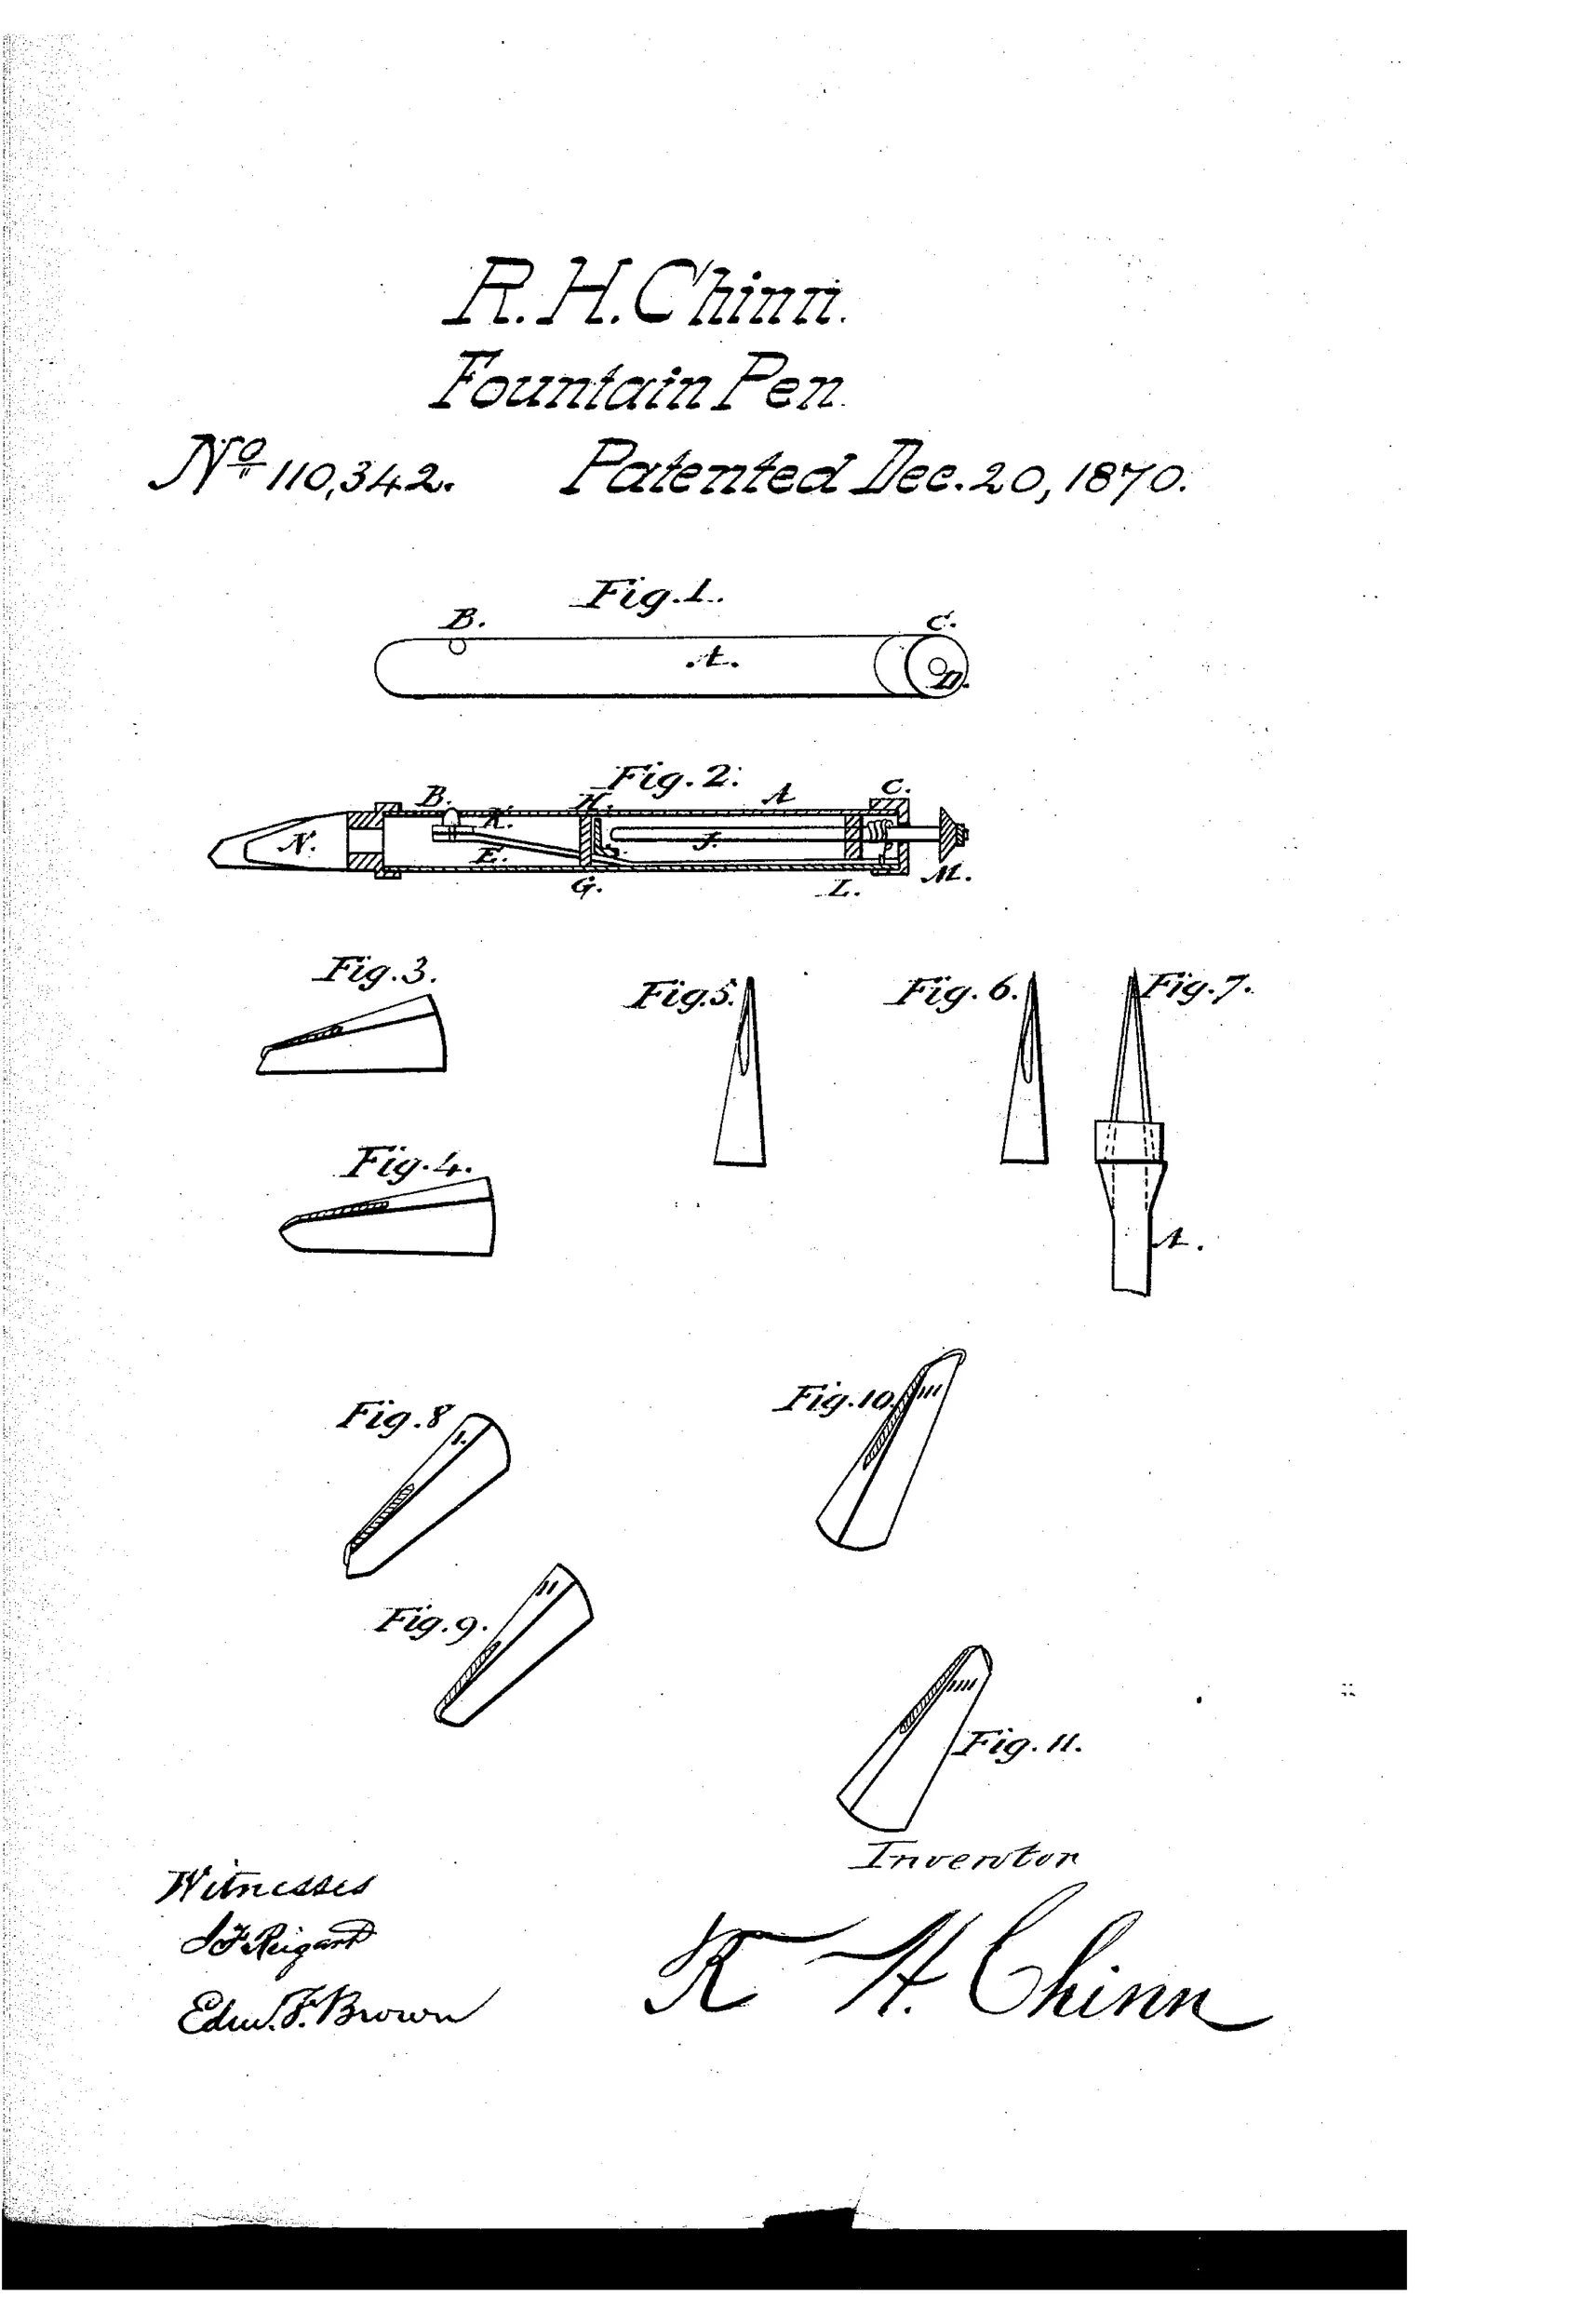 R. H. Chinn.
Fountain Pen.
No 110,342. Patented Dec. 20, 1870.
Fig. 1.
B. C.
A. D.
Fig. 2.
B. K. H. A C.
N. E. J.
G. L. M.
Fig. 3.
Fig. 5. Fig. 6. Fig. 7.
Fig. 4.
A.
Fig. 8 Fig. 10.
I. III
Fig. 9. II
IIII
Fig. 11.
Inventor
Witnesses
J. F. Reigart
R H. Chinn
Edw. F. Brown